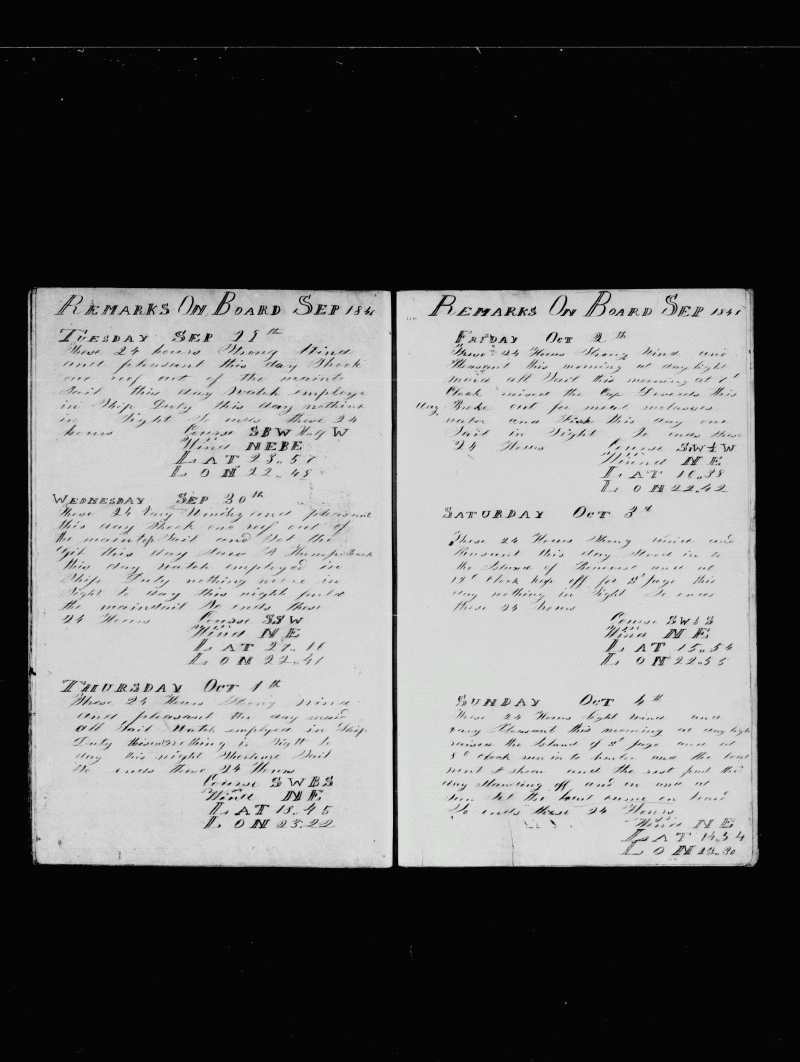 REMARKS ON BOARD SEP 184
TUESDAY SEP 29th
These 24 hours Strong Wind
and pleasant this day Shook
one reef out of the main
Sail this day Watch employe
in Ship Duty this day nothin
in Sight So ends these 24
hours Course SBW Half W
Wind NEBE
LAT 23..57
LON 22..45
WEDNESDAY SEP 30th
These 24 Vary and pleasant
this day Shook one reef out of
the main top Sail and Sot the
Gib this day Saw A Hump Back
this day Watch employed in
Ship Duty nothing more in
Sight to day this night furld
the mainsail So ends these
24 Hours Course SSW
Wind NE
LAT 21..16
LON 22..41
THURSDAY OCT 1th
These 24 Hours Strong Wind
and pleasant the day maid
all Sail Watch employed in Ship
Duty this nothing in Sight to
day this night Shortend Sail
So ends these 24 Hours
Course SWBS
Wind NE
LAT 18..45
LON 23..22
REMARKS ON BOARD SEP 184
FRIDAY OCT 2th
These 24 Hours Strong Wind and
Pleasant this morning at day light
maid all Sail this morning at
Clock raised the Cap Deverds this
day Broke out for meat molasses
water and this day one
Sail in Sight So ends these
24 Hours Course SW½W
Wind NE
LAT 16..38
LON 22..42
SATURDAY OCT 3d
These 24 Hours Strong wind and
Pleasant this day Stood in to
the Island of and at
12 Clock kept off for St Jago this
day nothing in Sight So ends
these 24 hours
Course SWBS
Wind NE
LAT 15..54
LON 22..55
SUNDAY OCT 4th
These 24 Hours light wind and
vary Pleasant this morning at day light
raised the Island of St Jago and at
Clock run in to harber and the boat
went A shore and the rest part this
day Standing off and on and at
Sun Set the boat came on board
So ends these 24 Hours
Wind NE
LAT 14..54
LON